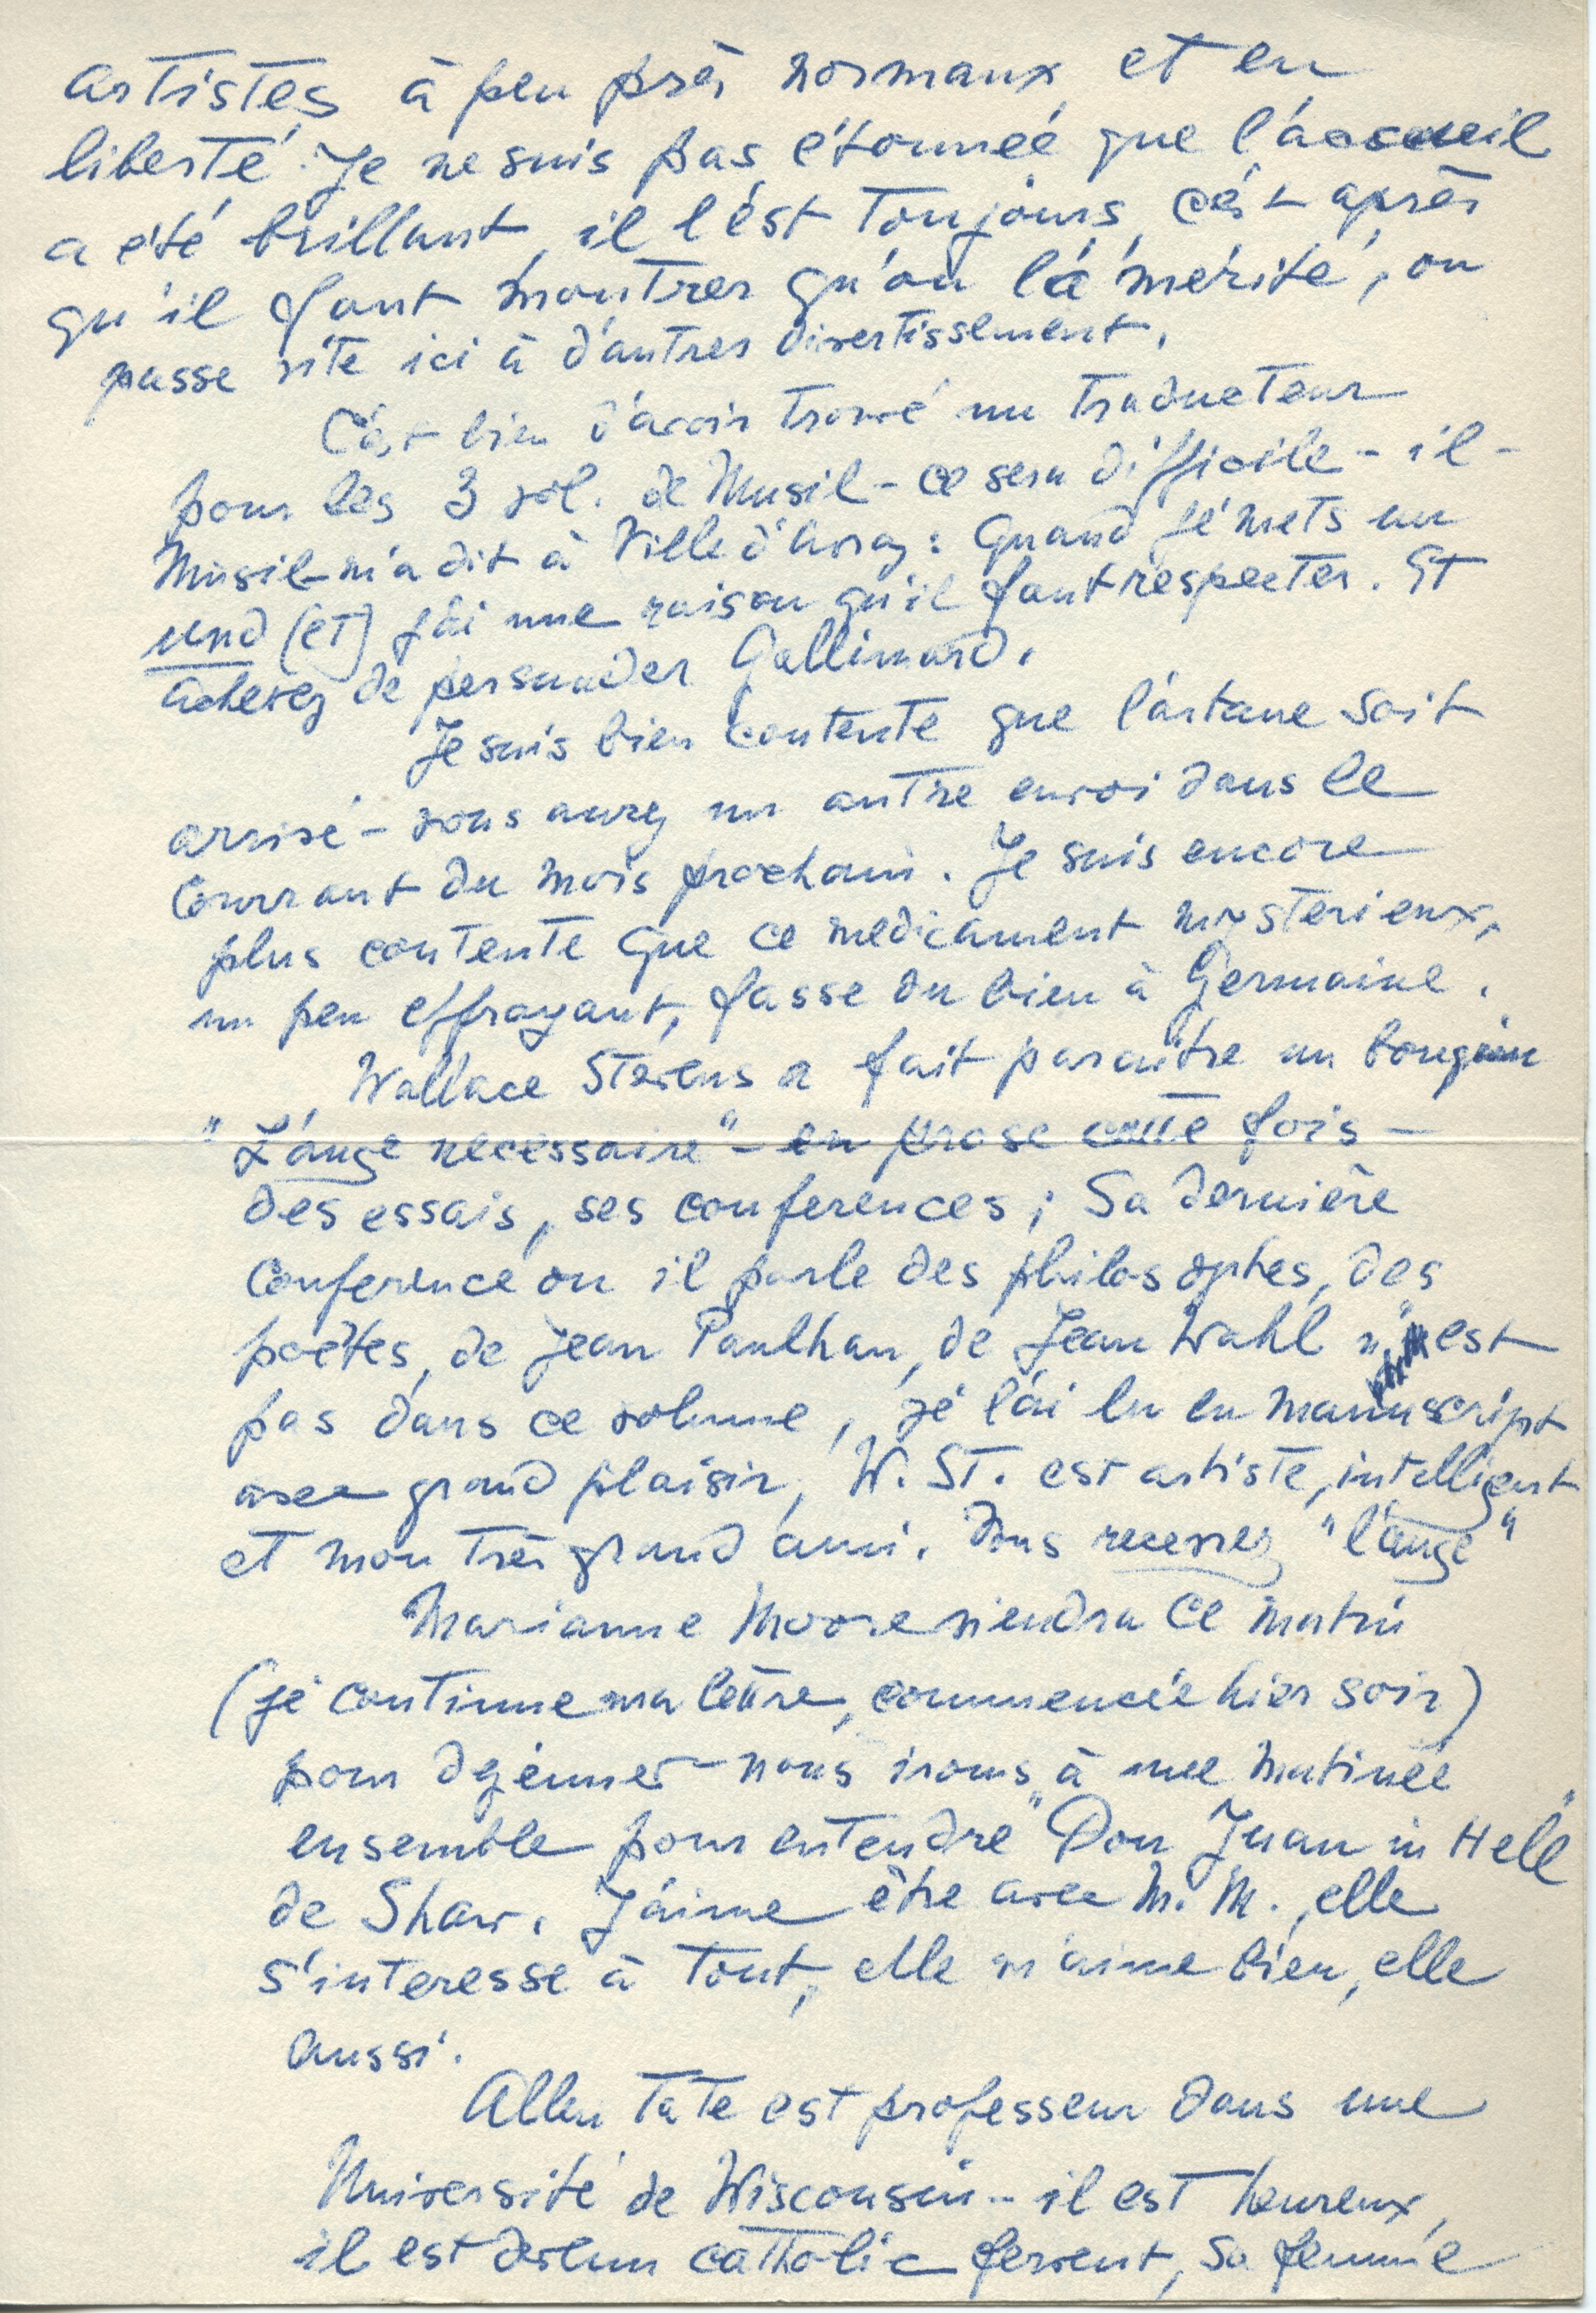 artistes à peu près normaux et en
liberté. Je ne suis pas étonnée que l'accueil
a été brillant, il l'est toujours, c'est après
qu'il faut montrer qu'on l'a mérité, on
passe vite ici à d'autres divertissement.
C'est bien d'avoir trouvé un traducteur
pour les 3 vol. de Musil - ce sera difficile - il -
Musil - m'a dit à Ville d'Avray: Quand je mets un
und (et) j'ai une raison qu'il faut respecter. Et
achevez de persuader Gallimard.
Je suis bien contente que l'artane soit
arrivé - vous aurez un autre envoi dans le
courrant du mois prochain. Je suis encore
plus contente que ce medicament mysterieux,
un peu effrayant, fasse du bien à Germaine.
Wallace Stevens a fait paraitre un bouquin
"L'ange necessaire" - en prose cette fois -
des essais, ses conferences; Sa dernière
conference ou il parle des philosophes, des
poètes, de Jean Paulhan, de Jean Wahl n'est
pas dans ce volume, je l'ai lu en manuscript
avec grand plaisir, W. St. est artiste, intelligent
et mon très grand ami. Vous recevrez "l'ange"
Marianne Moore viendra ce matin
(je continue ma lettre, commencée hier soir)
pour dejeuner - nous irons à une matinée
ensemble pour entendre "Don Juan in Hell"
de Shaw. J'aime être avec M. M., elle
s'interesse à tout, elle m'aime bien, elle
aussi.
Allen Tate est professeur dans une
Université de Wisconsin - il est heureux,
il est devenu catholic fervent, sa femme